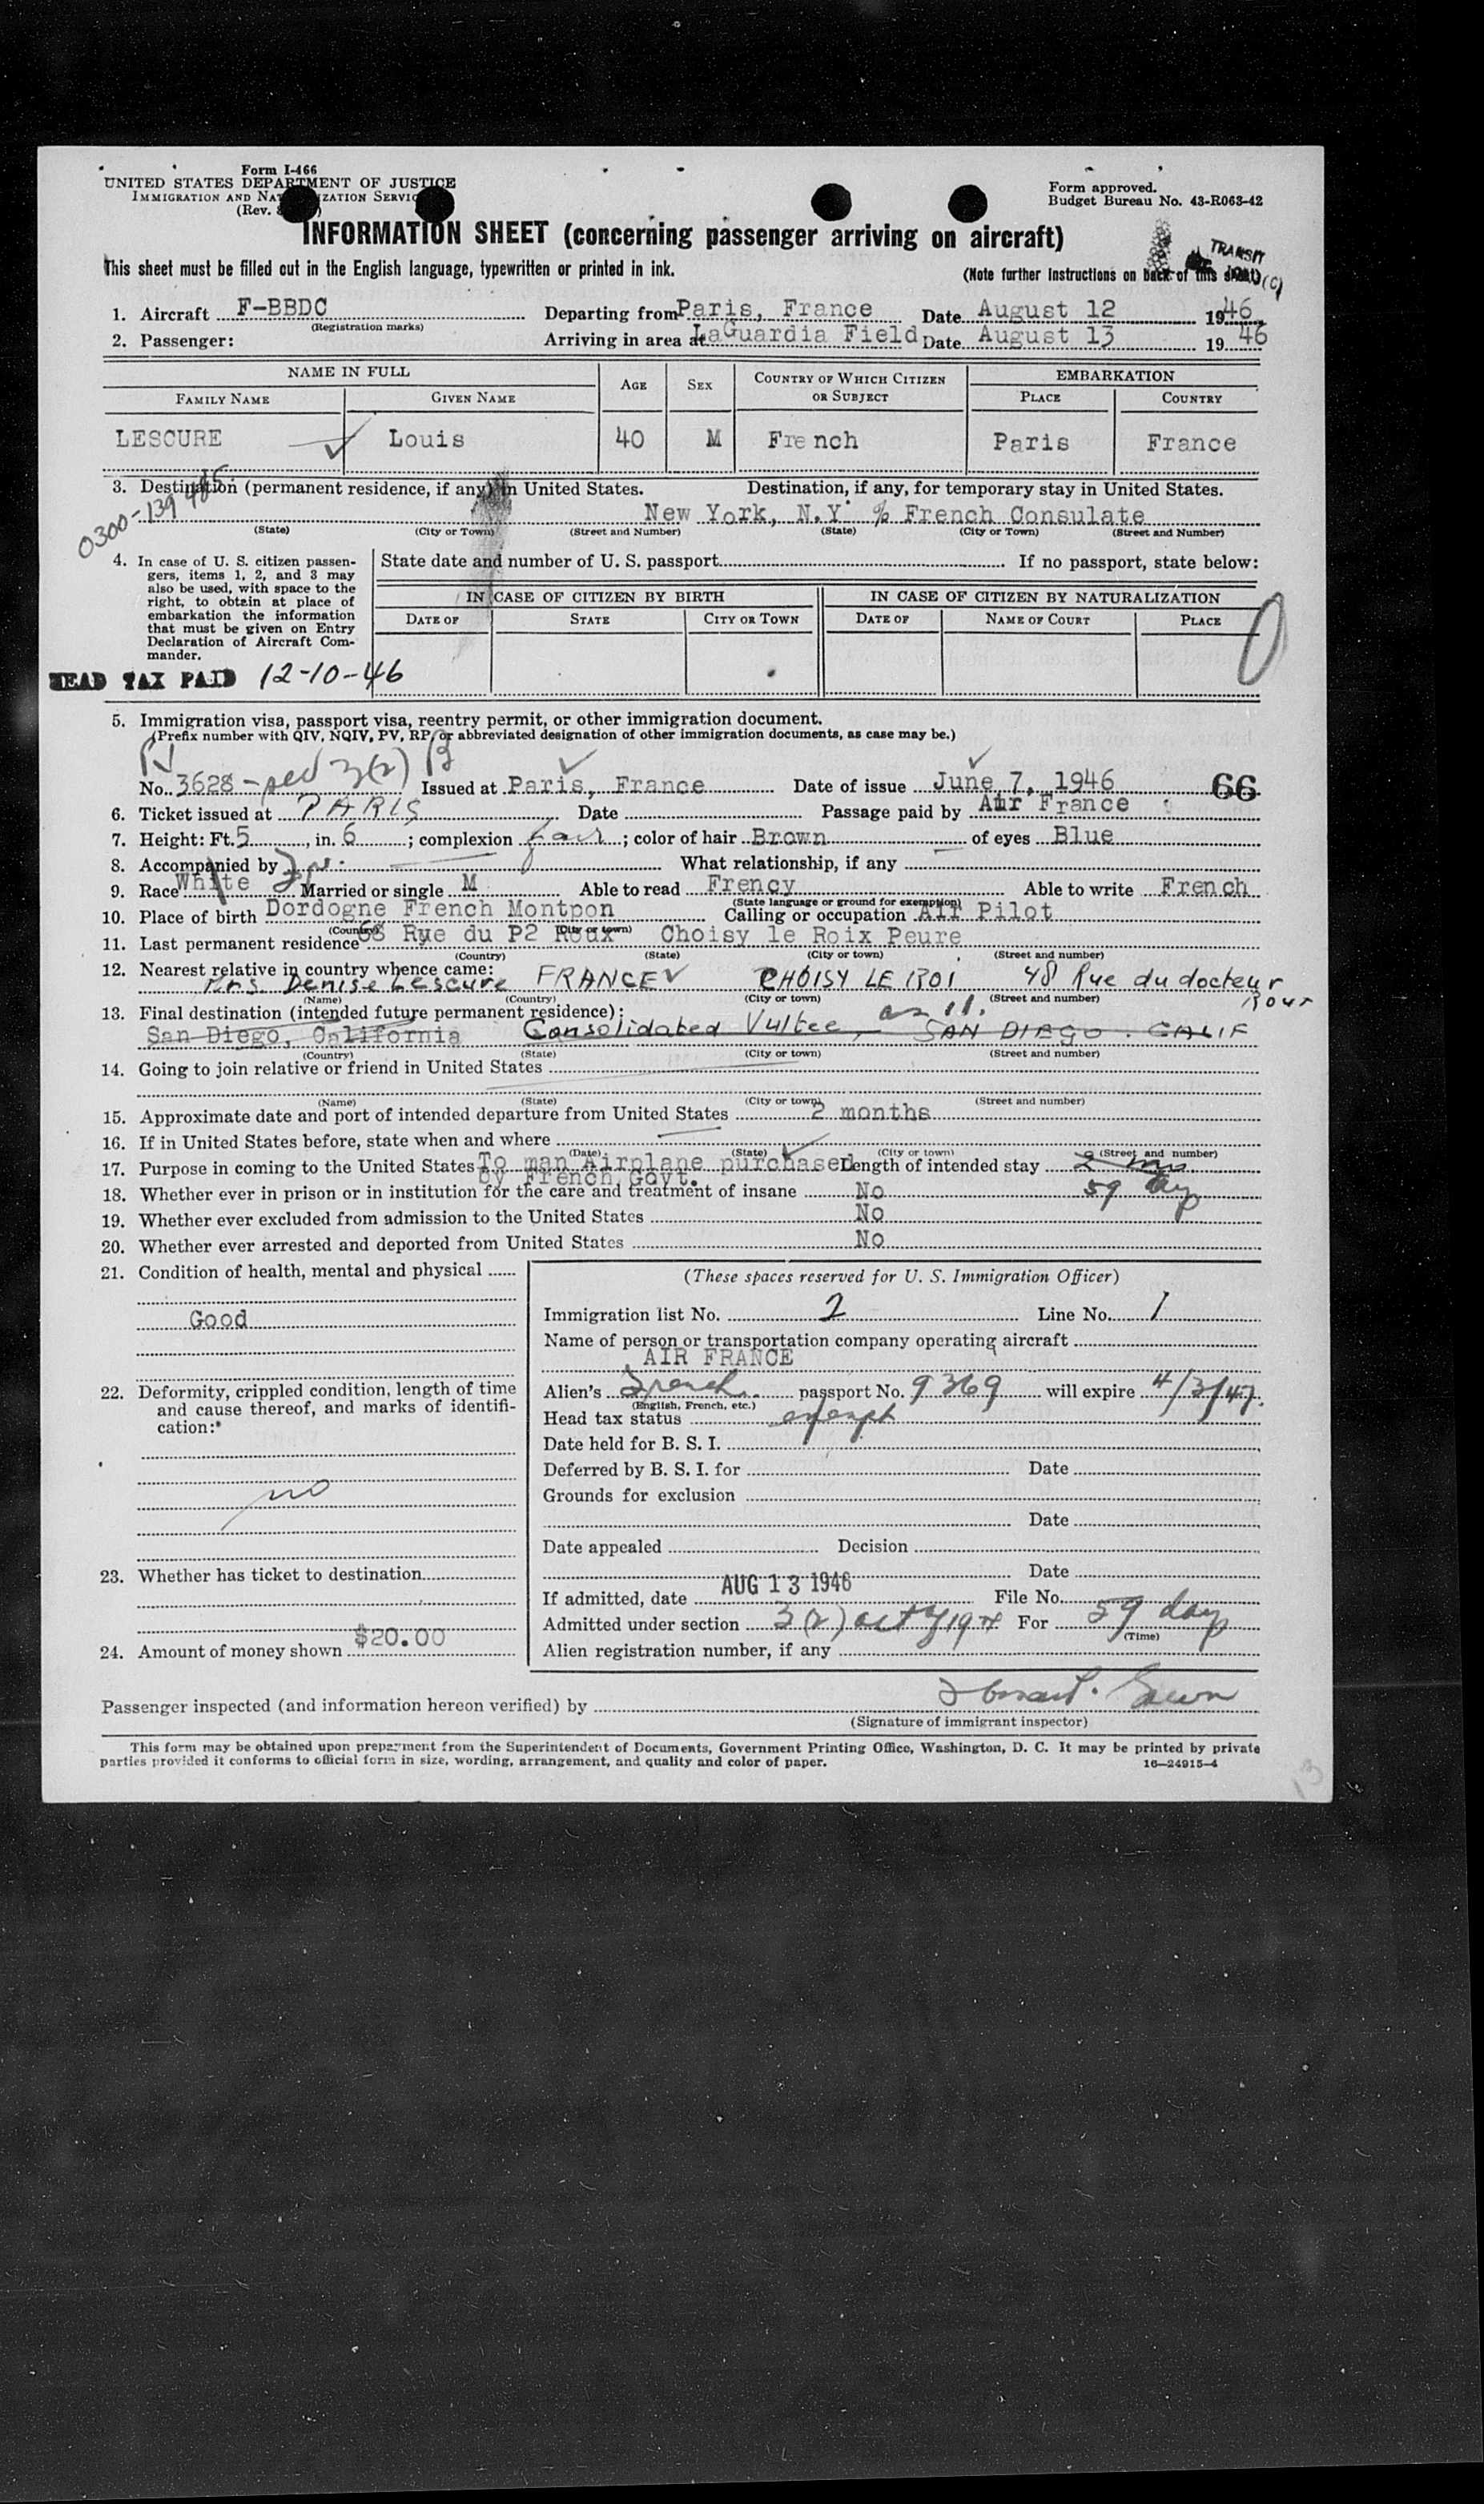 Form I-466
UNITED STATES DEPARTMENT OF JUSTICE
IMMIGRATION AND NATURALIZATION SERVICE
(Rev.
Form approved.
Budget Bureau No. 43-R063-42
INFORMATION SHEET (concerning passenger arriving on aircraft)
TRANSIT
This sheet must be filled out in the English language, typewritten or printed in ink.
(Note further instructions on back of this sheet)
1. Aircraft F-BBDC Departing from Paris, France Date August 12 1946
(Registration marks)
2. Passenger: Arriving in area at LaGuardia Field Date August 13 1946
NAME IN FULL AGE SEX COUNTRY OF WHICH CITIZEN OR SUBJECT EMBARKATION
FAMILY NAME GIVEN NAME PLACE COUNTRY
LESCURE Louis 40 M French Paris France
3. Destination (permanent residence, if any) in United States. Destination, if any, for temporary stay in United States.
0300-139 405
New York, N.Y. % French Consulate
(State) (City or Town) (Street and Number) (State) (City or Town) (Street and Number)
4. In case of U. S. citizen passengers, items 1, 2, and 3 may also be used, with space to the right, to obtain at place of embarkation the information that must be given on Entry Declaration of Aircraft Commander.
State date and number of U. S. passport If no passport, state below:
IN CASE OF CITIZEN BY BIRTH IN CASE OF CITIZEN BY NATURALIZATION
DATE OF STATE CITY OR TOWN DATE OF NAME OF COURT PLACE
0
HEAD TAX PAID 12-10-46
5. Immigration visa, passport visa, reentry permit, or other immigration document.
(Prefix number with QIV, NQIV, PV, RP, or abbreviated designation of other immigration documents, as case may be.)
No. 3628 - sec 3(2) Issued at Paris, France Date of issue June 7, 1946 66
6. Ticket issued at PARIS Date Passage paid by Air France
7. Height: Ft. 5, in. 6; complexion fair; color of hair Brown of eyes Blue
8. Accompanied by What relationship, if any
9. Race White Married or single M Able to read Frency Able to write French
(State language or ground for exemption)
10. Place of birth Dordogne French Montpon Calling or occupation Air Pilot
(Country) (City or town)
11. Last permanent residence 68 Rye du P2 Roux Choisy le Roix Peure
(Country) (State) (City or town) (Street and number)
12. Nearest relative in country whence came:
Mrs. Denise Lescure FRANCE CHOISY LE ROI 48 Rue du docteur Rour
(Name) (Country) (City or town) (Street and number)
13. Final destination (intended future permanent residence): as 11.
San Diego, California Consolidated Vultee, SAN DIEGO. CALIF
(Country) (State) (City or town) (Street and number)
14. Going to join relative or friend in United States
(Name) (State) (City or town) (Street and number)
15. Approximate date and port of intended departure from United States 2 months
16. If in United States before, state when and where
(Date) (State) (City or town) (Street and number)
17. Purpose in coming to the United States To man Airplane purchased Length of intended stay 2 mo.
by French Govt.
18. Whether ever in prison or in institution for the care and treatment of insane No 59 days
19. Whether ever excluded from admission to the United States No
20. Whether ever arrested and deported from United States No
21. Condition of health, mental and physical
Good
22. Deformity, crippled condition, length of time and cause thereof, and marks of identification:*
no
23. Whether has ticket to destination
24. Amount of money shown $20.00
(These spaces reserved for U. S. Immigration Officer)
Immigration list No. 2 Line No. 1
Name of person or transportation company operating aircraft
AIR FRANCE
Alien's French passport No. 9369 will expire 4/3/47.
(English, French, etc.)
Head tax status exempt
Date held for B. S. I.
Deferred by B. S. I. for Date
Grounds for exclusion
Date
Date appealed Decision
Date
If admitted, date AUG 13 1946 File No.
Admitted under section 3(2) act of 1924 For 59 days
(Time)
Alien registration number, if any
Passenger inspected (and information hereon verified) by
(Signature of immigrant inspector)
This form may be obtained upon prepayment from the Superintendent of Documents, Government Printing Office, Washington, D. C. It may be printed by private
parties provided it conforms to official form in size, wording, arrangement, and quality and color of paper. 16—24915-4
13